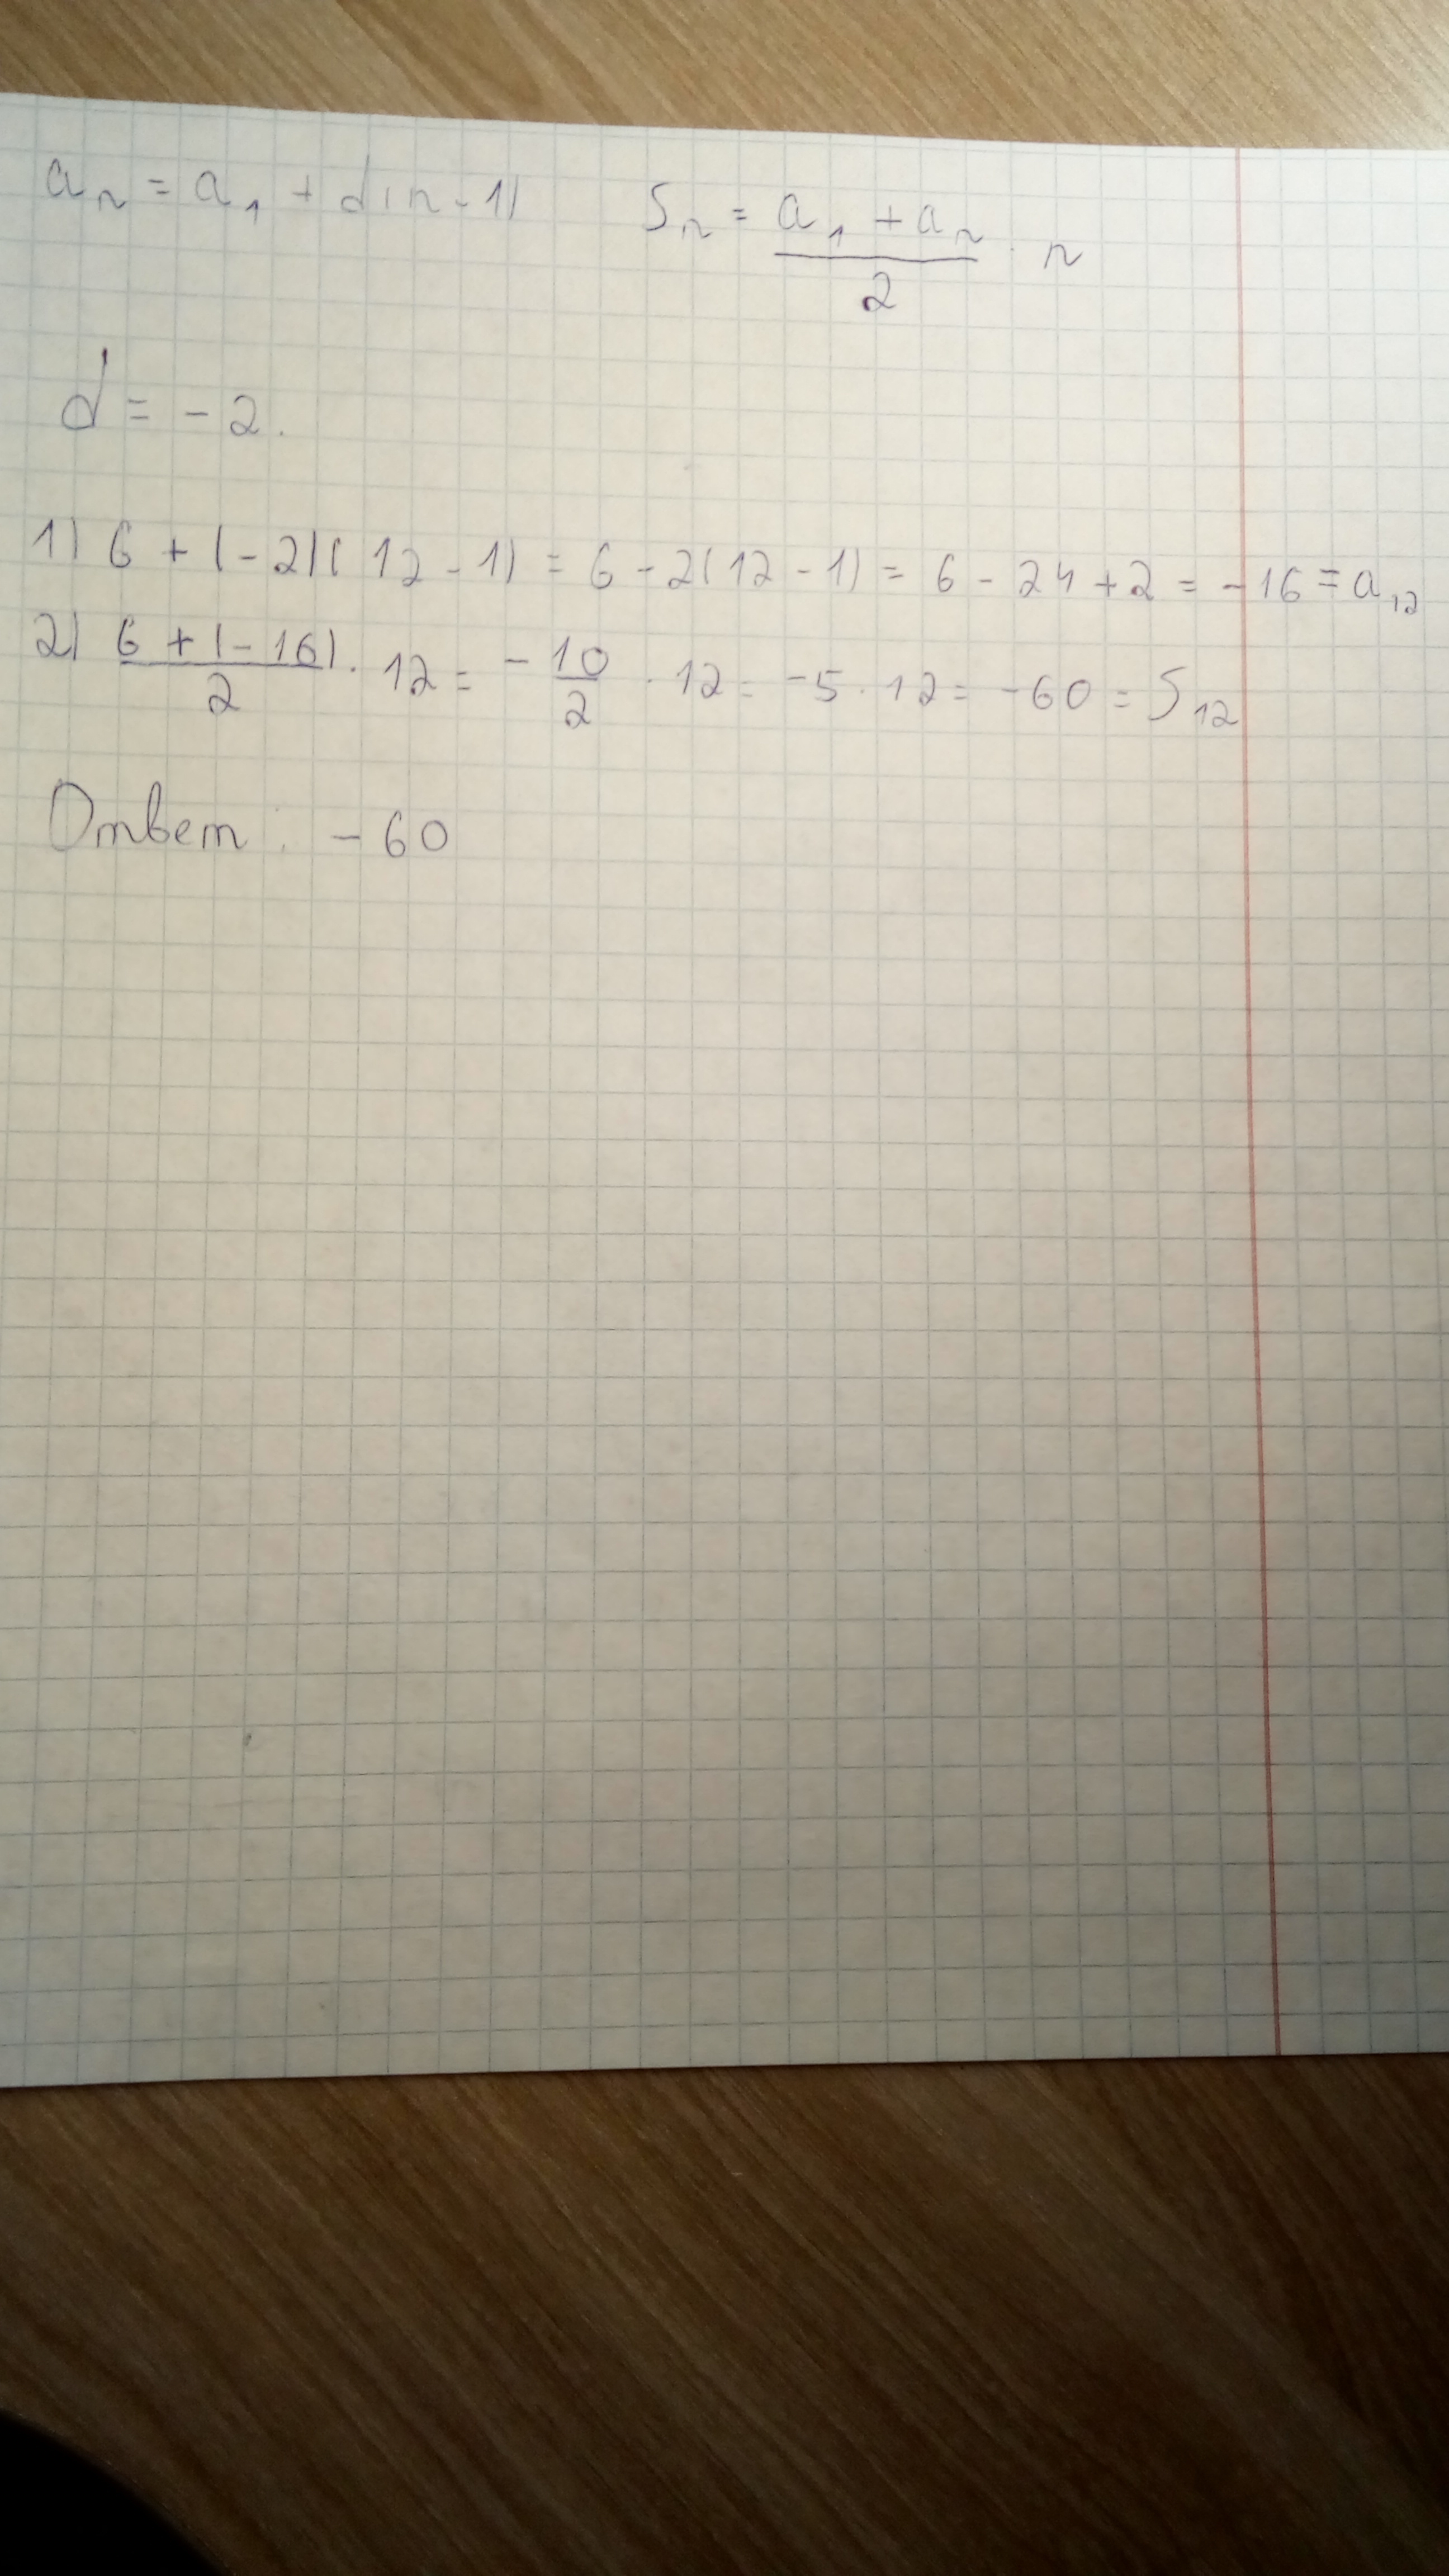 aₙ = a₁ + d(n - 1) Sₙ = (a₁ + aₙ)/2 · n
d = -2.
1) 6 + (-2)(12 - 1) = 6 - 2(12 - 1) = 6 - 24 + 2 = -16 = a₁₂
2) (6 + (-16))/2 · 12 = -10/2 · 12 = -5 · 12 = -60 = S₁₂
Ответ: -60